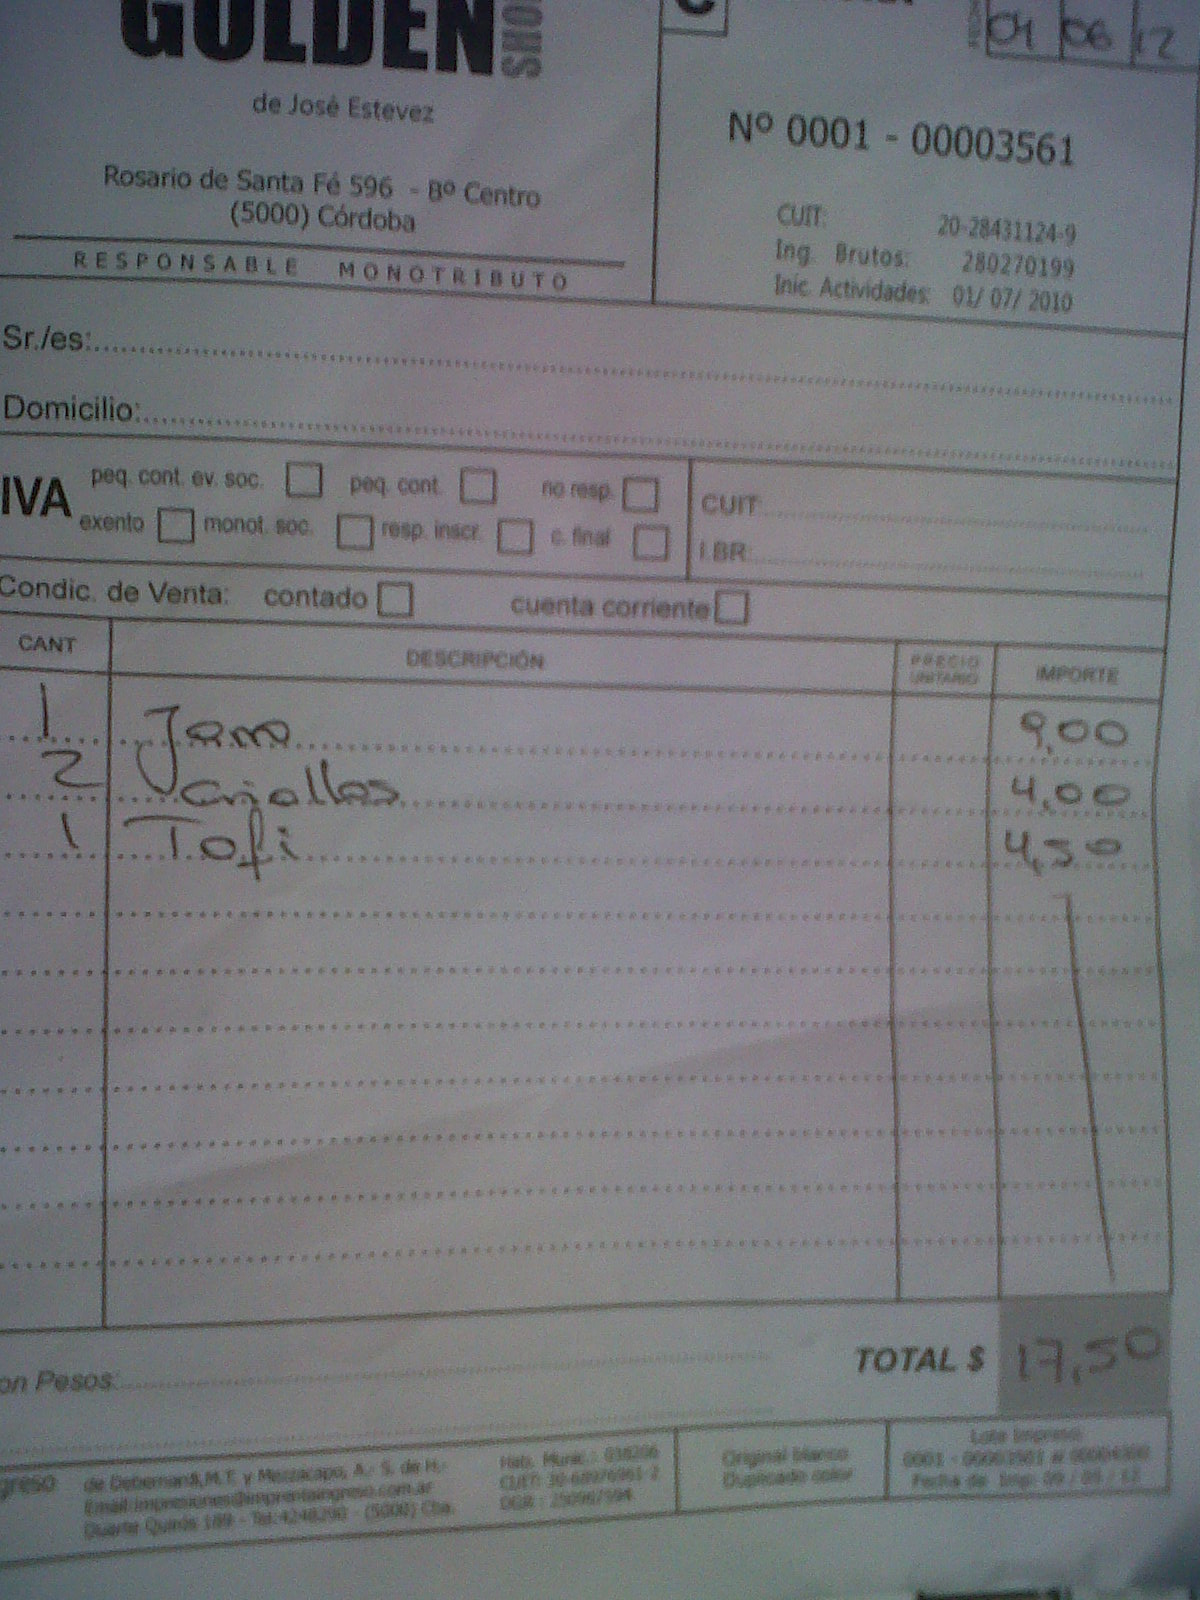 GOLDEN
de José Estevez
Rosario de Santa Fé 596 - Bº Centro
(5000) Córdoba
RESPONSABLE MONOTRIBUTO
C
06 12
Nº 0001 - 00003561
CUIT: 20-28431124-9
Ing. Brutos: 280270199
Inic. Actividades: 01/ 07/ 2010
Sr./es:
Domicilio:
IVA
peq. cont. ev. soc. peq. cont. no resp.
exento monot. soc. resp. inscr. c. final
CUIT:
I.BR:
Condic. de Venta: contado cuenta corriente
CANT DESCRIPCIÓN PRECIO UNITARIO IMPORTE
1 9,00
2 4,00
1 Tofi 4,50
on Pesos:
TOTAL $ 17,50
greso
de Debernardi, M.T. y Mezzacapo, A.- S. de H.-
Email: impresiones@imprentaingreso.com.ar
Duarte Quirós 189 - Tel: 4248290 - (5000) Cba.
Hab. Munic.: 038206
Original blanco
Duplicado color
Lote Impreso